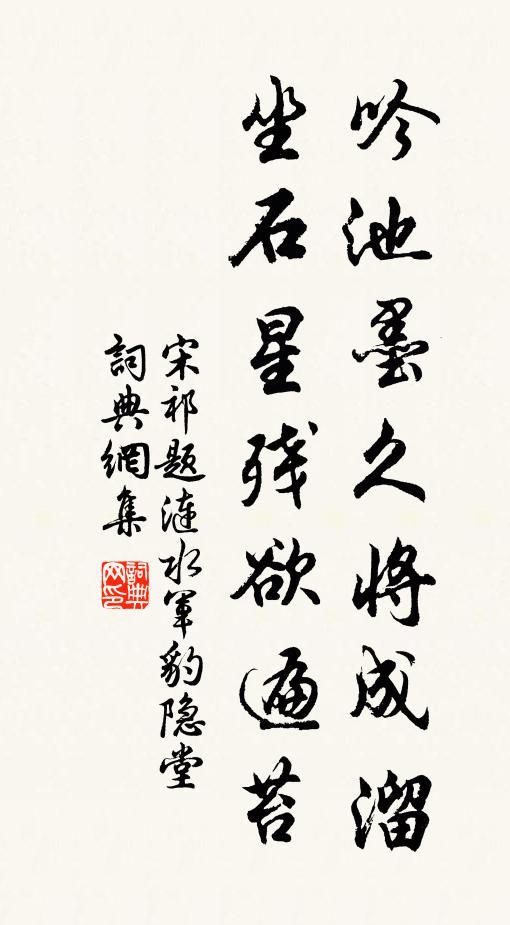 吟池墨久将成溜
坐石星残欲遍苔
宋祁题涟水军豹隐堂
詞典網集
詞典网印